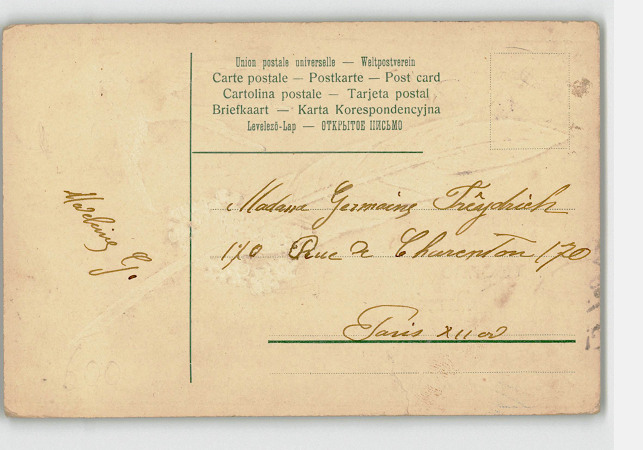 Union postale universelle — Weltpostverein
Carte postale — Postkarte — Post card
Cartolina postale — Tarjeta postal
Briefkaart — Karta Korespondencyjna
Levelező-Lap — ОТКРЫТОЕ ПИСЬМО
Madame Germaine
170 Rue de Charenton 170
Paris XII
Madeleine G.